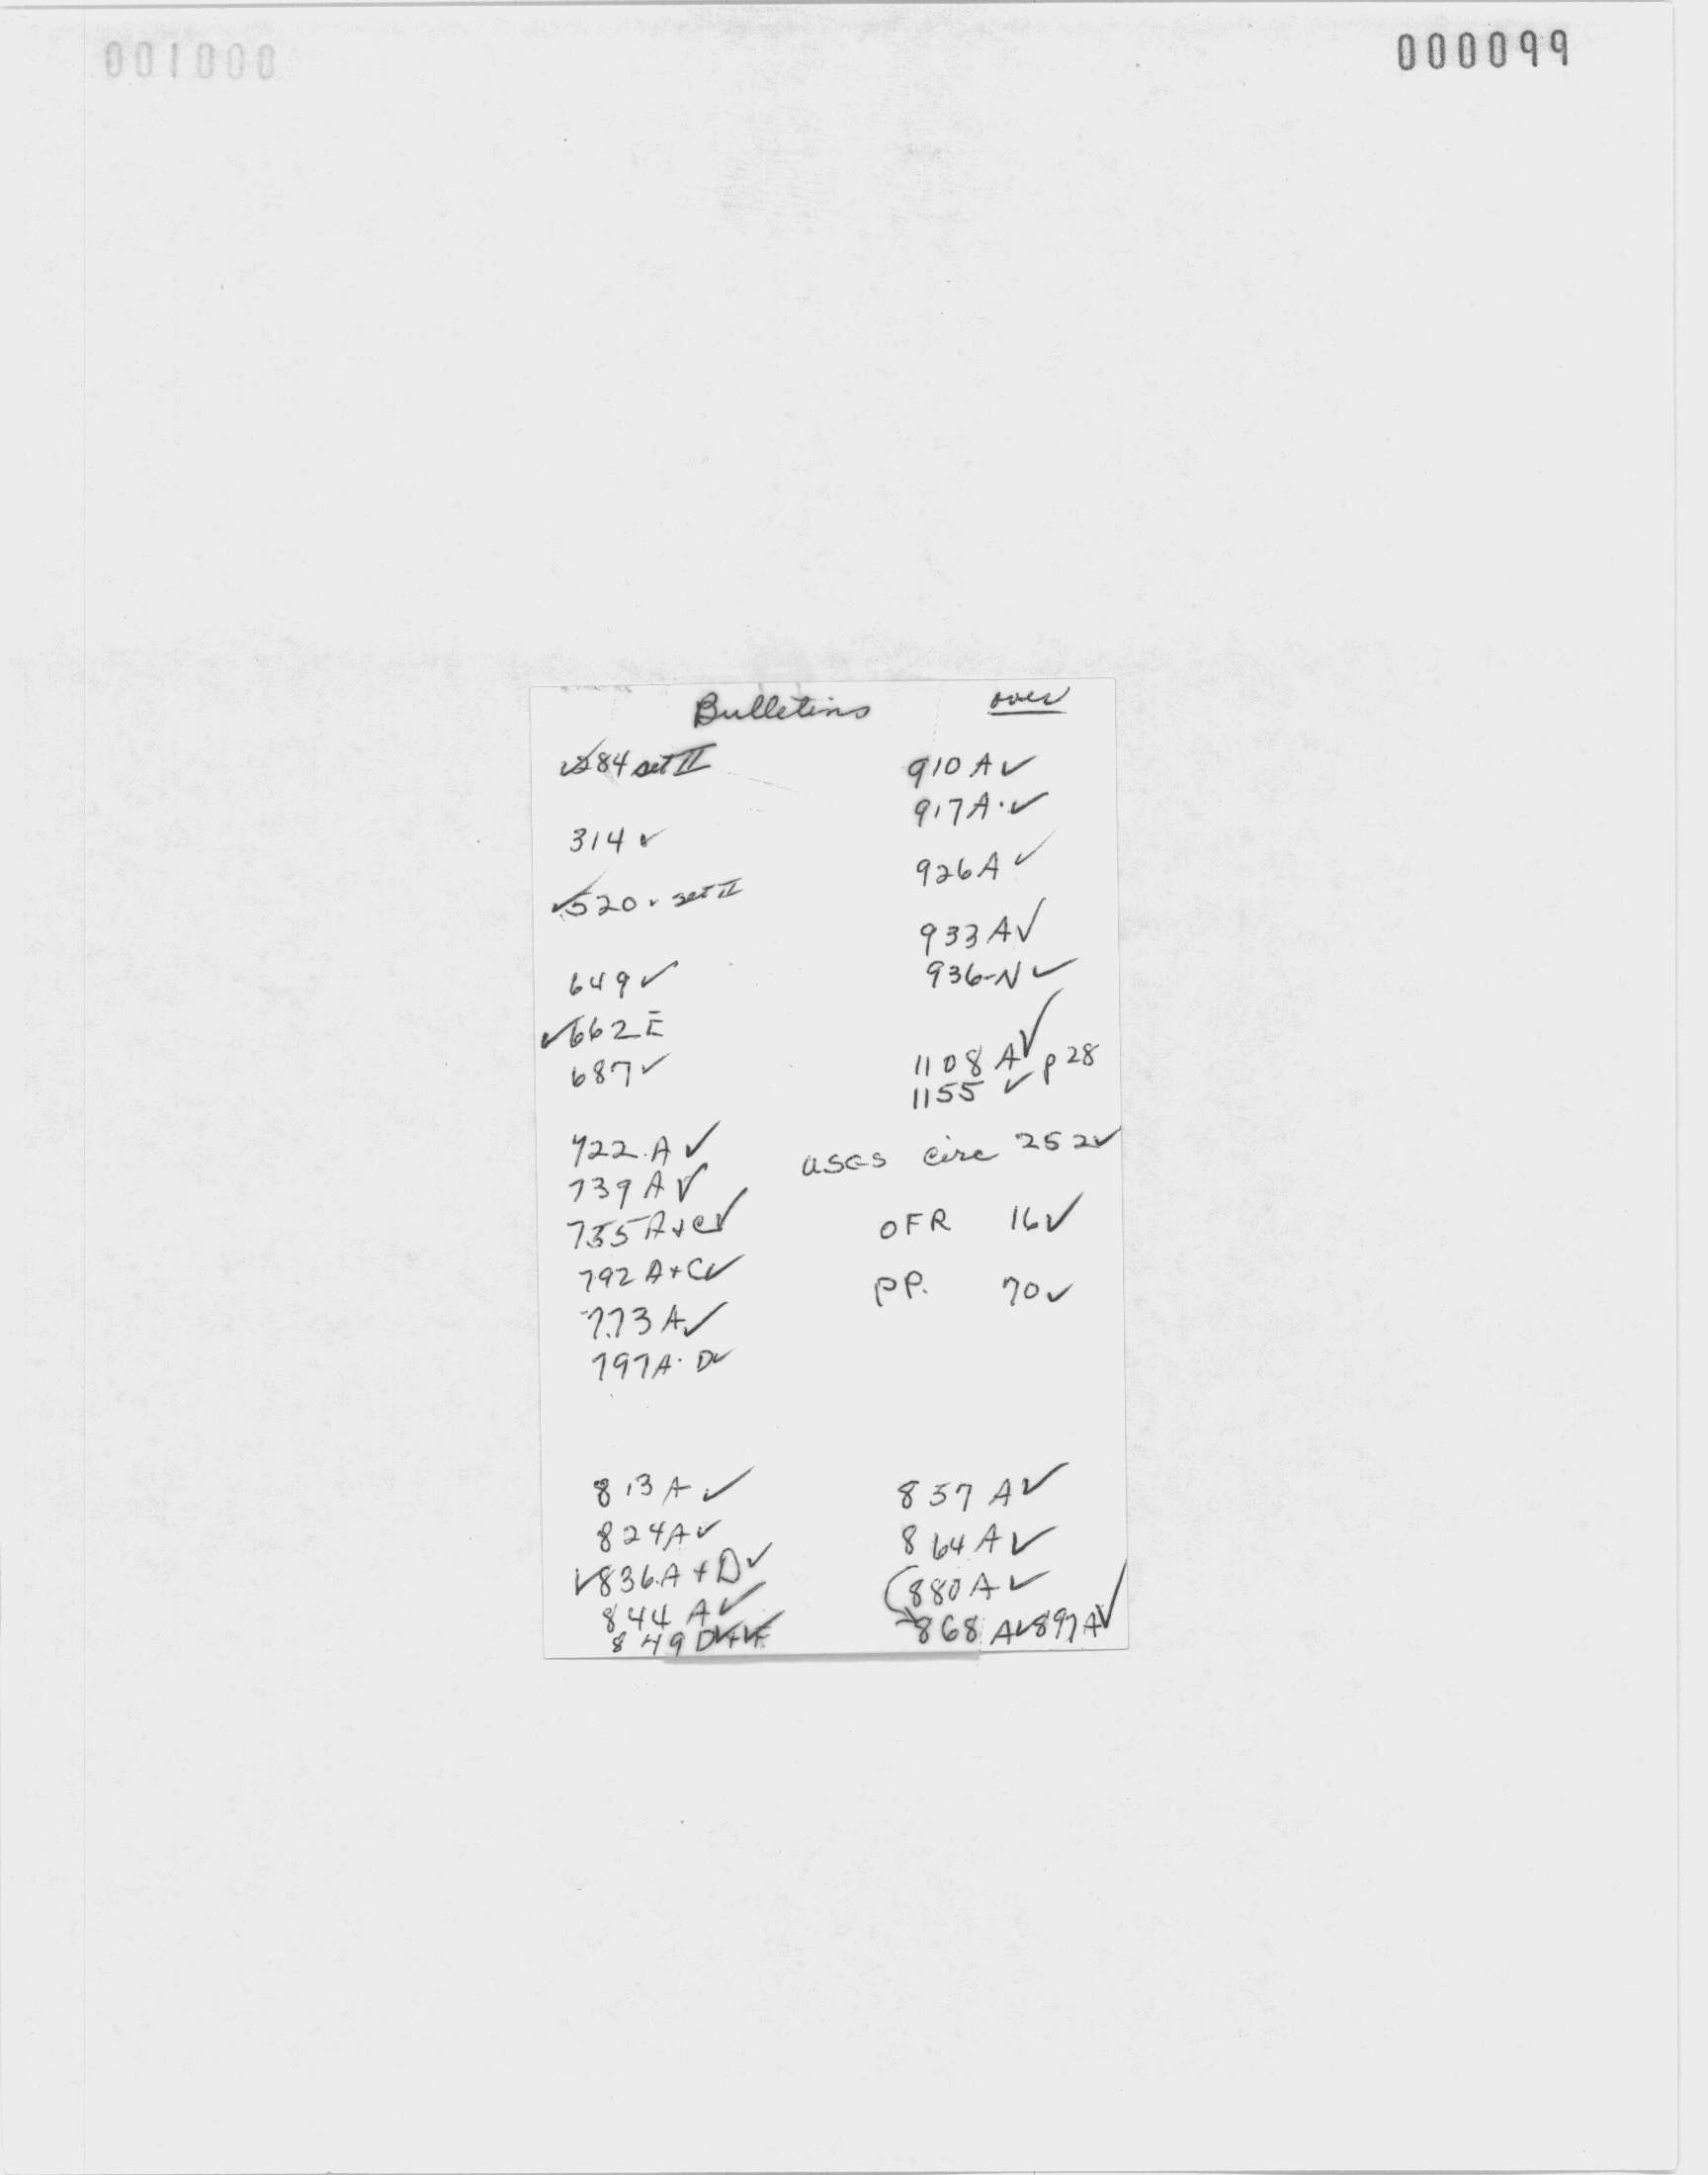 001000
000099
Bulletins over
✓284 set II
314 ✓
✓520 ✓ set II
649 ✓
✓662 E
687 ✓
722 A ✓
739 A ✓
755 A+C ✓
792 A+C ✓
773 A ✓
797 A. D ✓
813 A ✓
824 A ✓
✓836 A + D ✓
844 A ✓
849
910 A ✓
917 A. ✓
926 A ✓
933 A ✓
936-N ✓
1108 A ✓ p 28
1155 ✓
USGS Circ 252 ✓
OFR 16 ✓
PP. 70 ✓
857 A ✓
864 A ✓
880 A ✓
868 A ✓ 897 A ✓